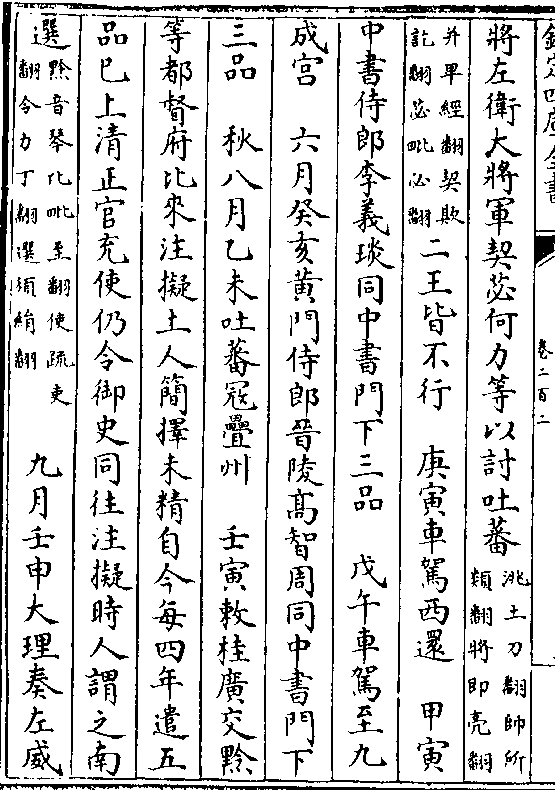 欽定四庫全書
卷二百二
將左衛大將軍契苾何力等以討吐蕃洮土刀翻帥所
類翻將即亮翻
并畢經翻契欺
訖翻苾毗必翻二王皆不行 庚寅車駕西還 甲寅
中書侍郎李義琰同中書門下三品 戊午車駕至九
成宫 六月癸亥黄門侍郎晉陵髙智周同中書門下
三品 秋八月乙未吐蕃寇疊州 壬寅敕桂廣交黔
等都督府比來注擬土人簡擇未精自今每四年遣五
品已上清正官充使仍令御史同往注擬時人謂之南
選黔音琴比毗至翻使疏吏
翻令力丁翻選須絹翻 九月壬申大理奏左威